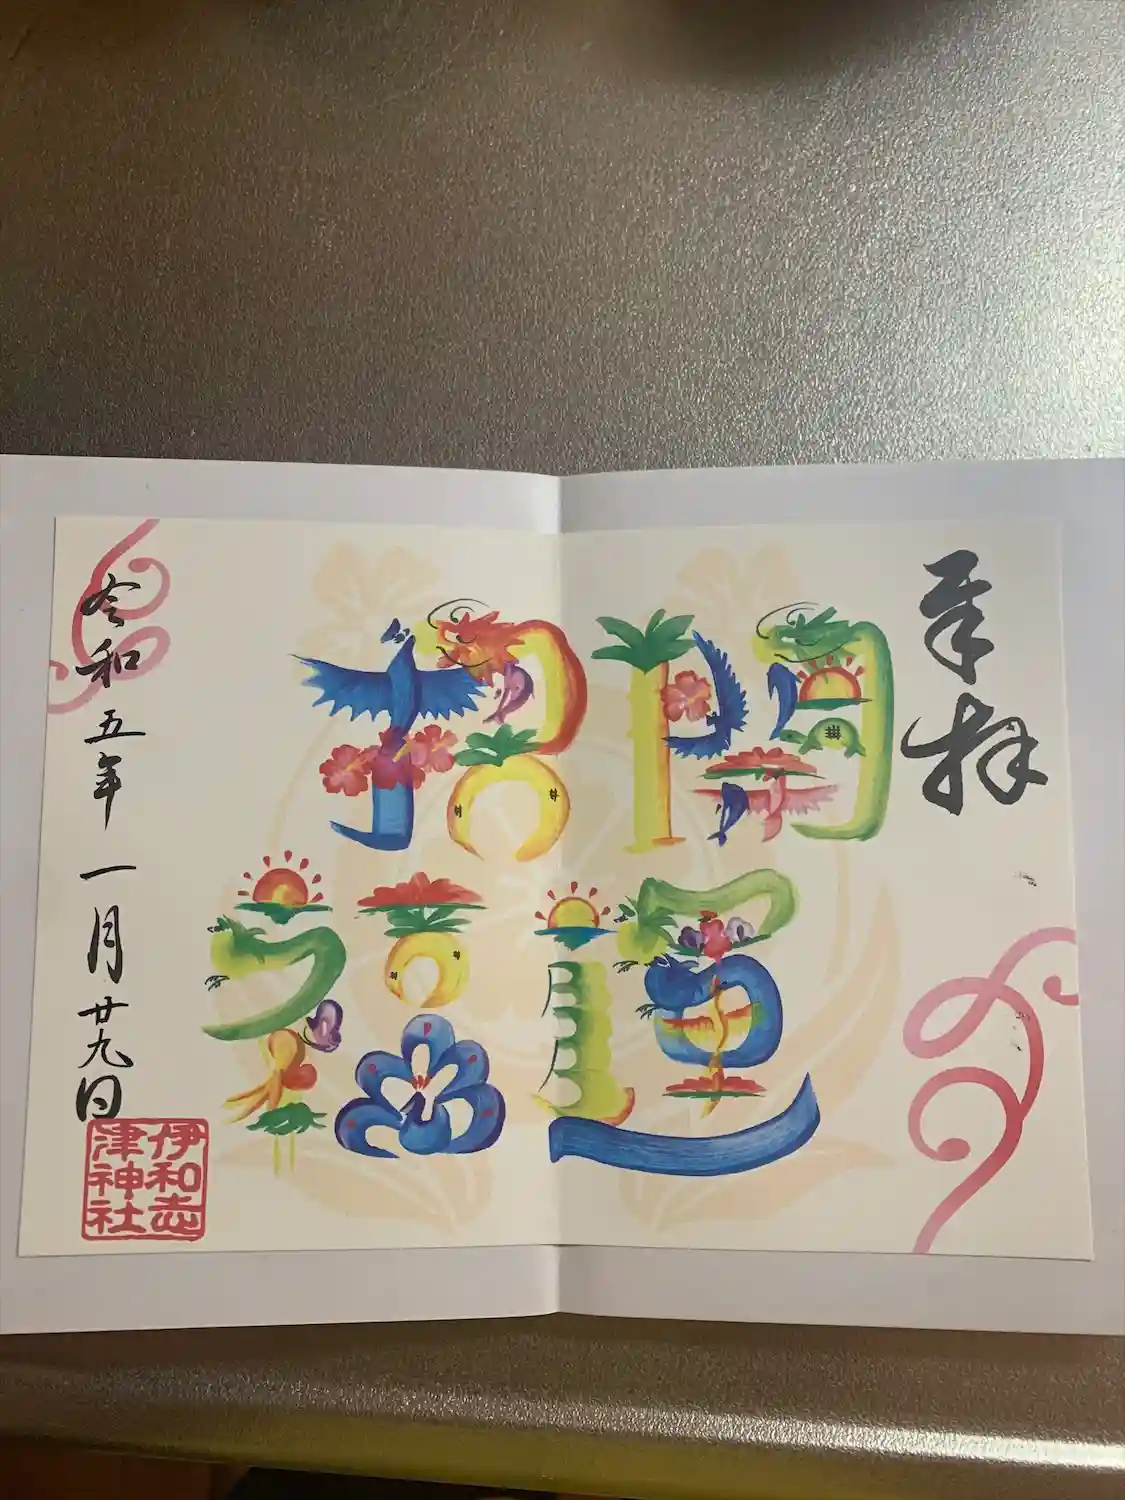 奉拝
開運
招福
令和五年一月廿九日
伊和志
津神社